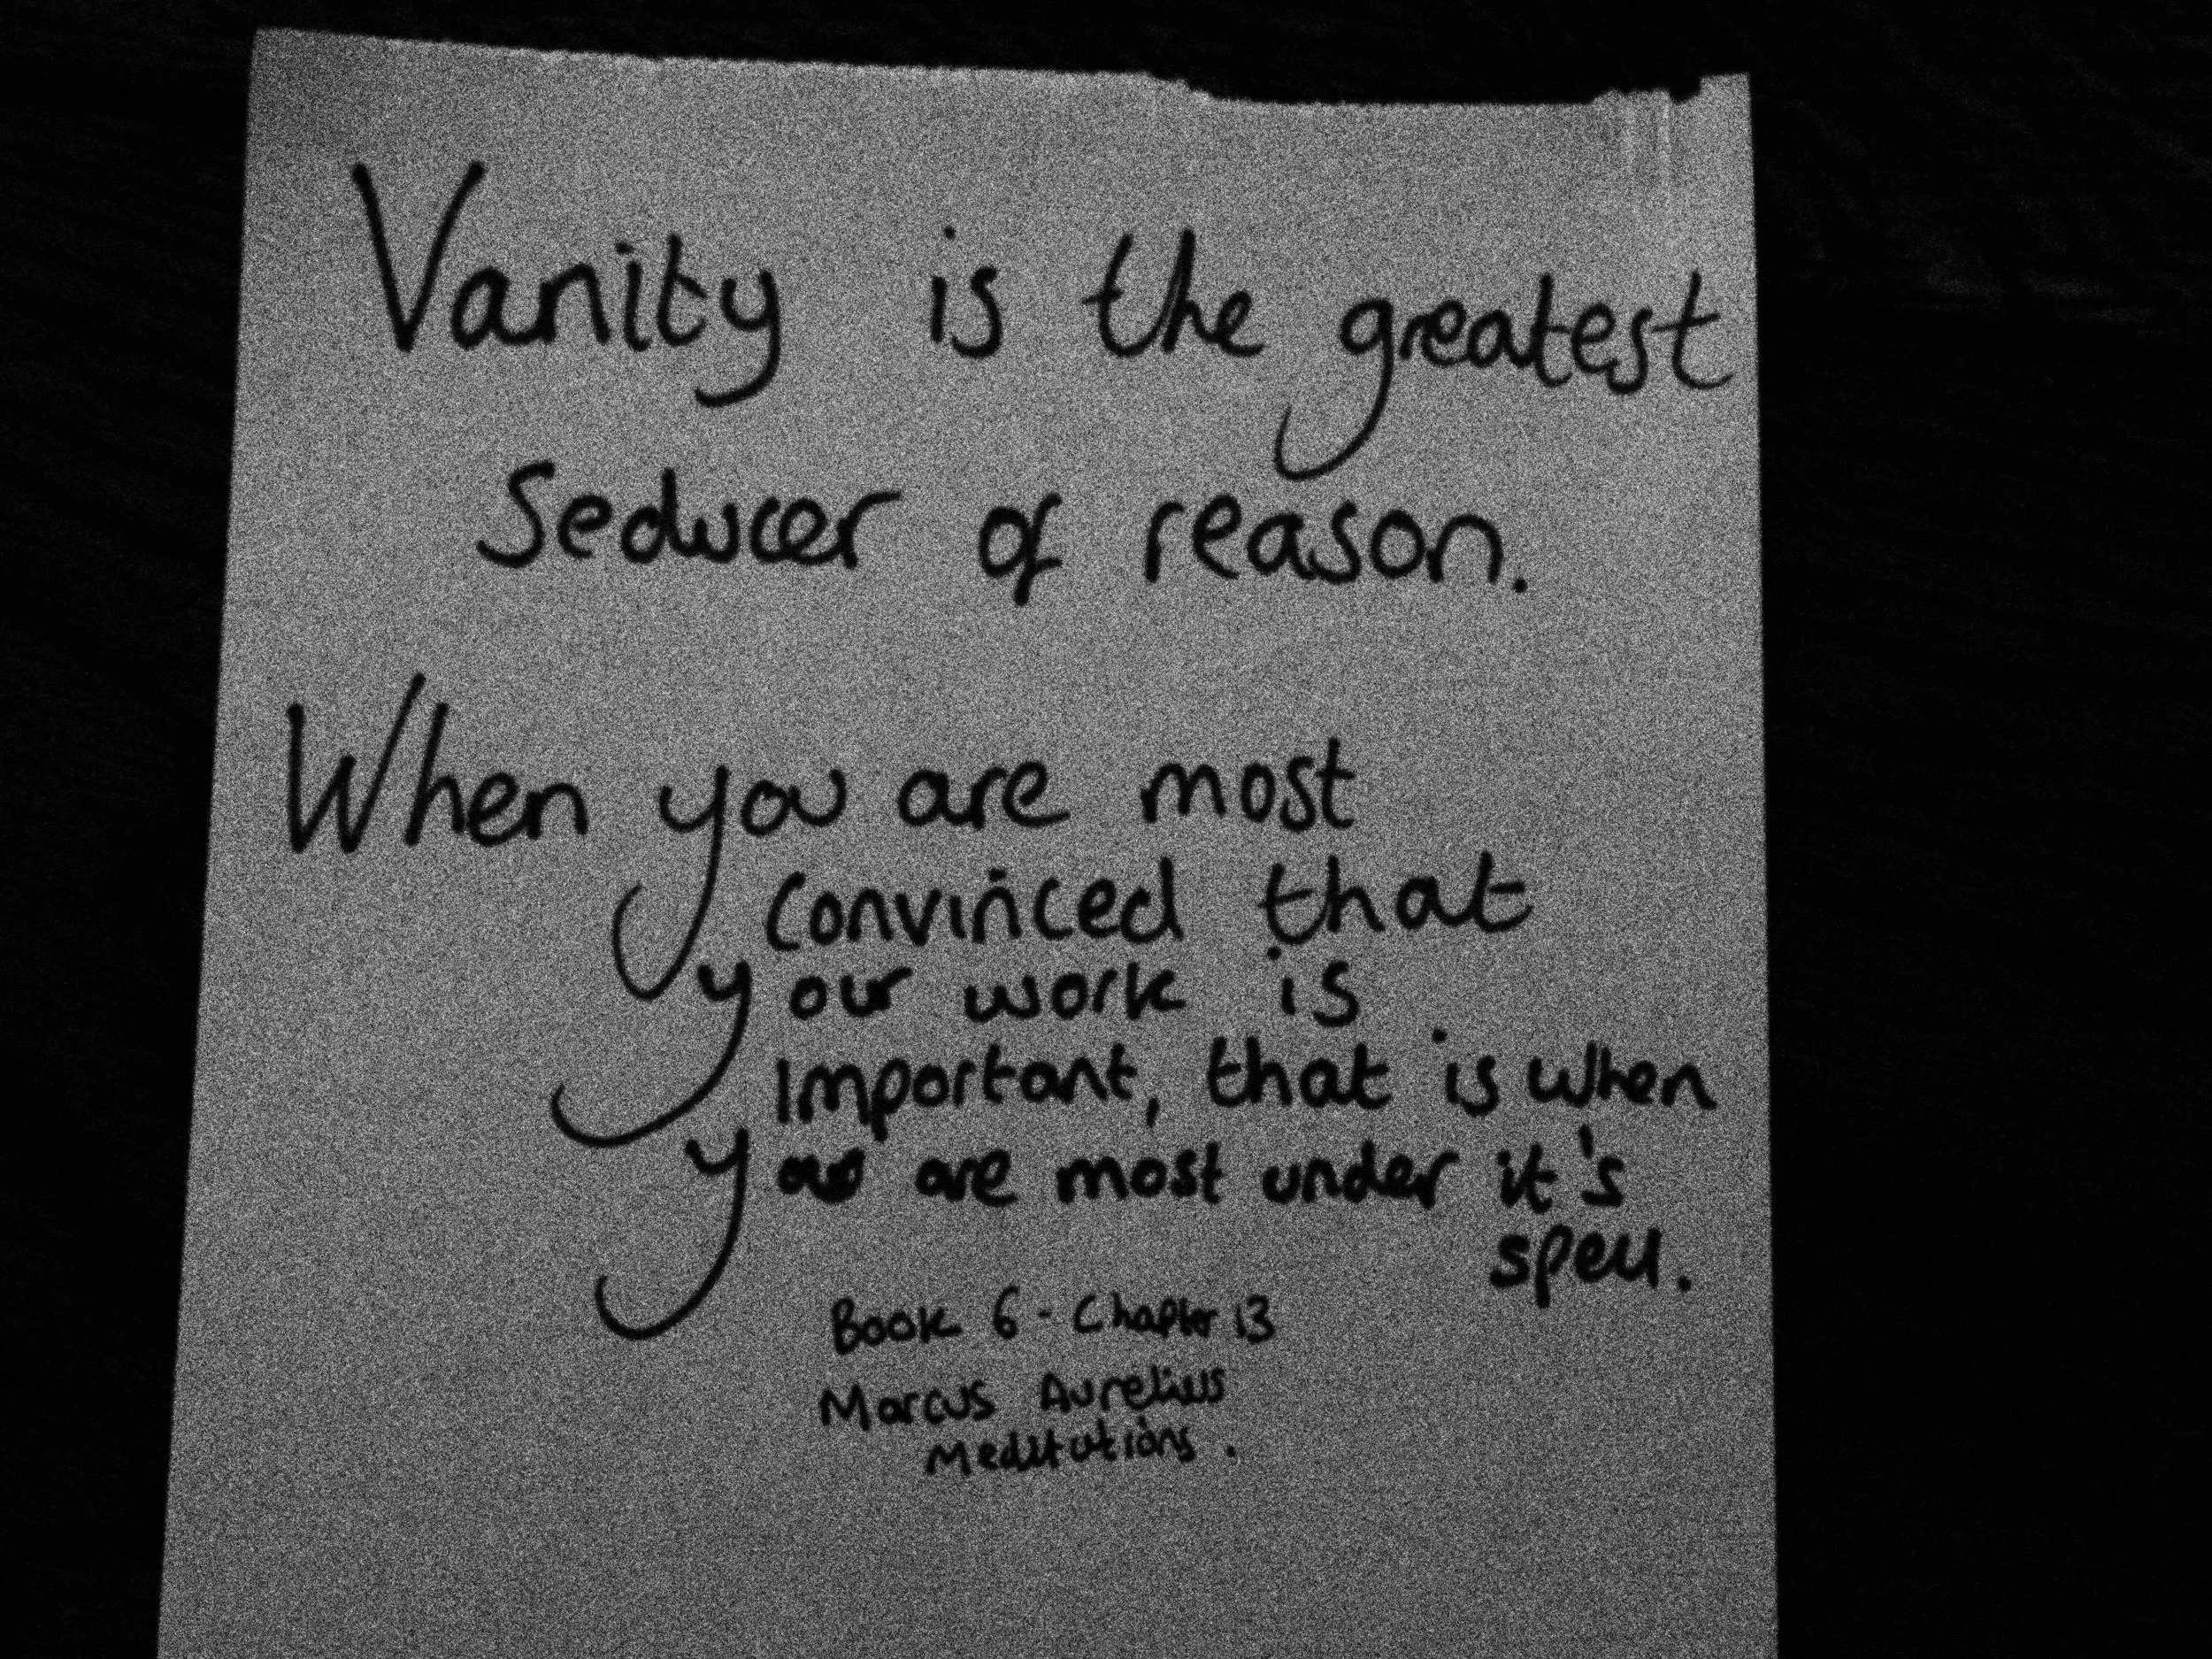 Vanity is the greatest
Seducer of reason.
When you are most
Convinced that
your work is
important, that is when
you are most under it's
spell.
Book 6 - Chapter 13
Marcus Aurelius
Meditations.